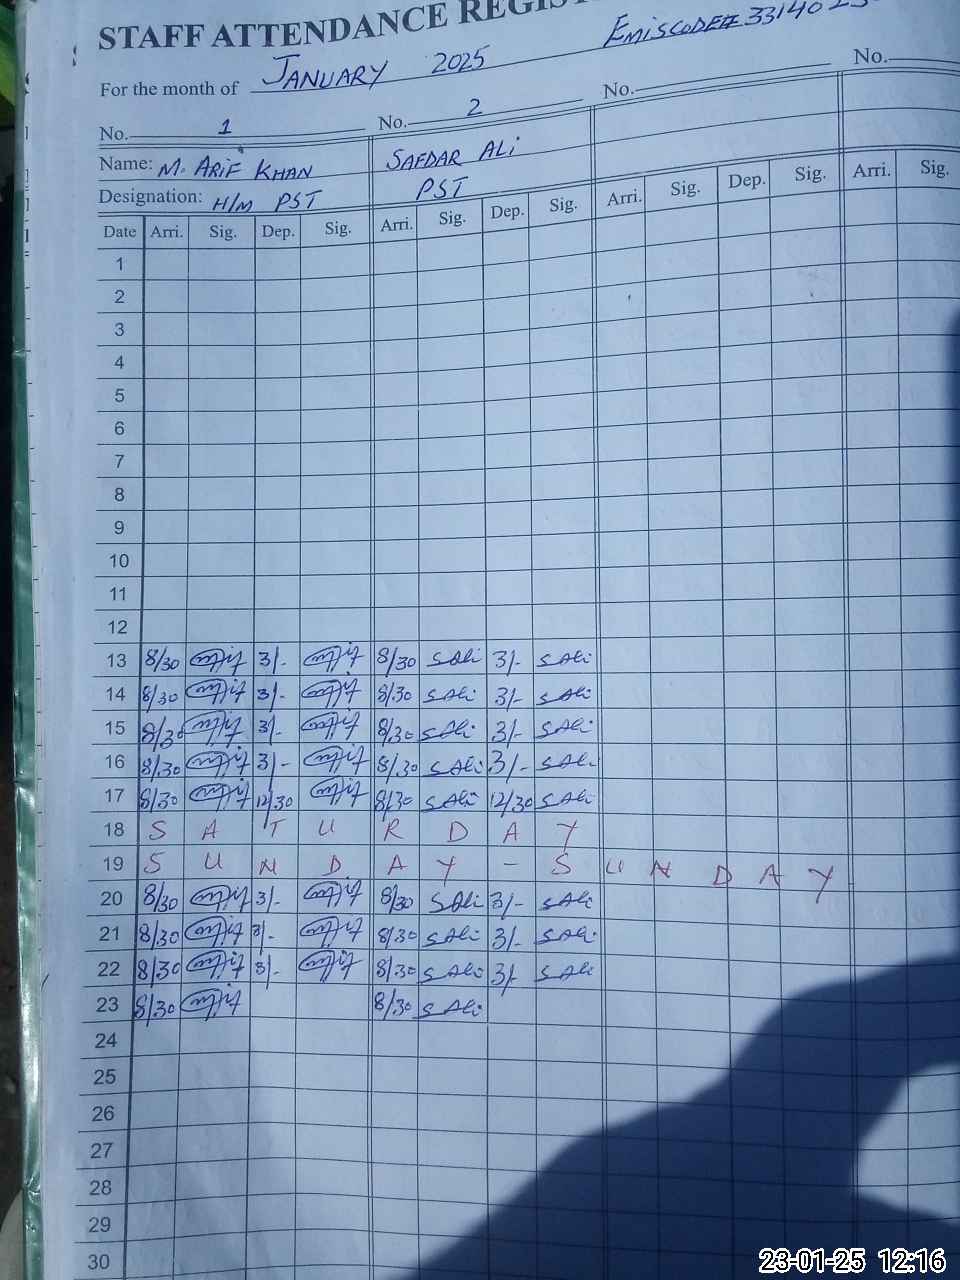 STAFF ATTENDANCE
EMISCODE#
For the month of JANUARY 2025
No. 1 No. 2 No. No.
Name: M. ARIF KHAN SAFDAR ALI
Designation: H/M PST PST
Date Arri. Sig. Dep. Sig. Arri. Sig. Dep. Sig. Arri. Sig. Dep. Sig. Arri. Sig.
1
2
3
4
5
6
7
8
9
10
11
12
13 8/30 3/- 8/30 SAli 3/- SAli
14 8/30 3/- 8/30 SAli 3/- SAli
15 8/30 3/- 8/30 SAli 3/- SAli
16 8/30 3/- 8/30 SAli 3/- SAli
17 8/30 12/30 8/30 SAli 12/30 SAli
18 S A T U R D A Y
19 S U N D A Y - S U N D A Y
20 8/30 3/- 8/30 SAli 3/- SAli
21 8/30 3/- 8/30 SAli 3/- SAli
22 8/30 3/- 8/30 SAli 3/- SAli
23 8/30 8/30 SAli
24
25
26
27
28
29
30
23-01-25 12:16